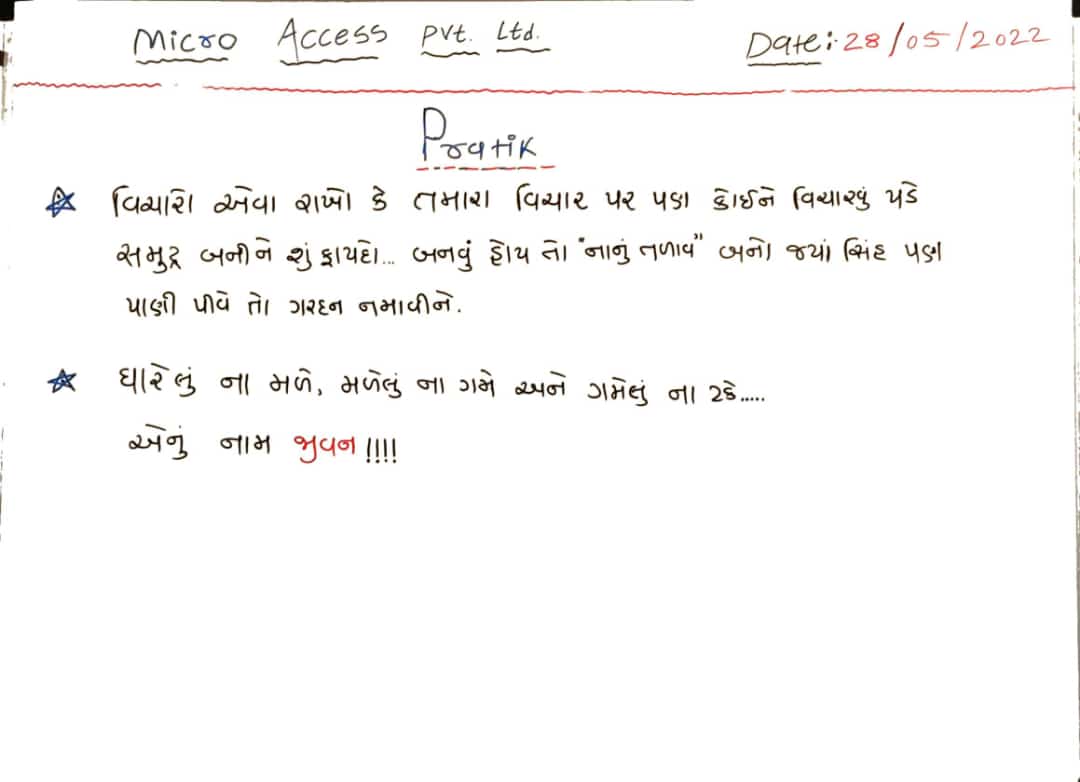 Micro Access Pvt. Ltd. Date: 28/05/2022
Pratik
☆ વિચારો એવા રાખો કે તમારા વિચાર પર પણ કોઈને વિચારવું પડે
સમુદ્ર બનીને શું ફાયદો... બનવું હોય તો "નાનું તળાવ" બનો જયાં સિંહ પણ
પાણી પીવે તો ગરદન નમાવીને.
☆ ધારેલું ના મળે, મળેલું ના ગમે અને ગમેલું ના ટકે.....
એનું નામ જીવન !!!!